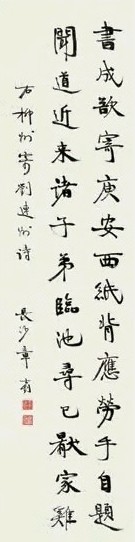 書成欲寄庾安西紙背應勞手自題
聞道近来諸子弟臨池尋已猒家雞
右柳州寄劉連州诗
長沙章